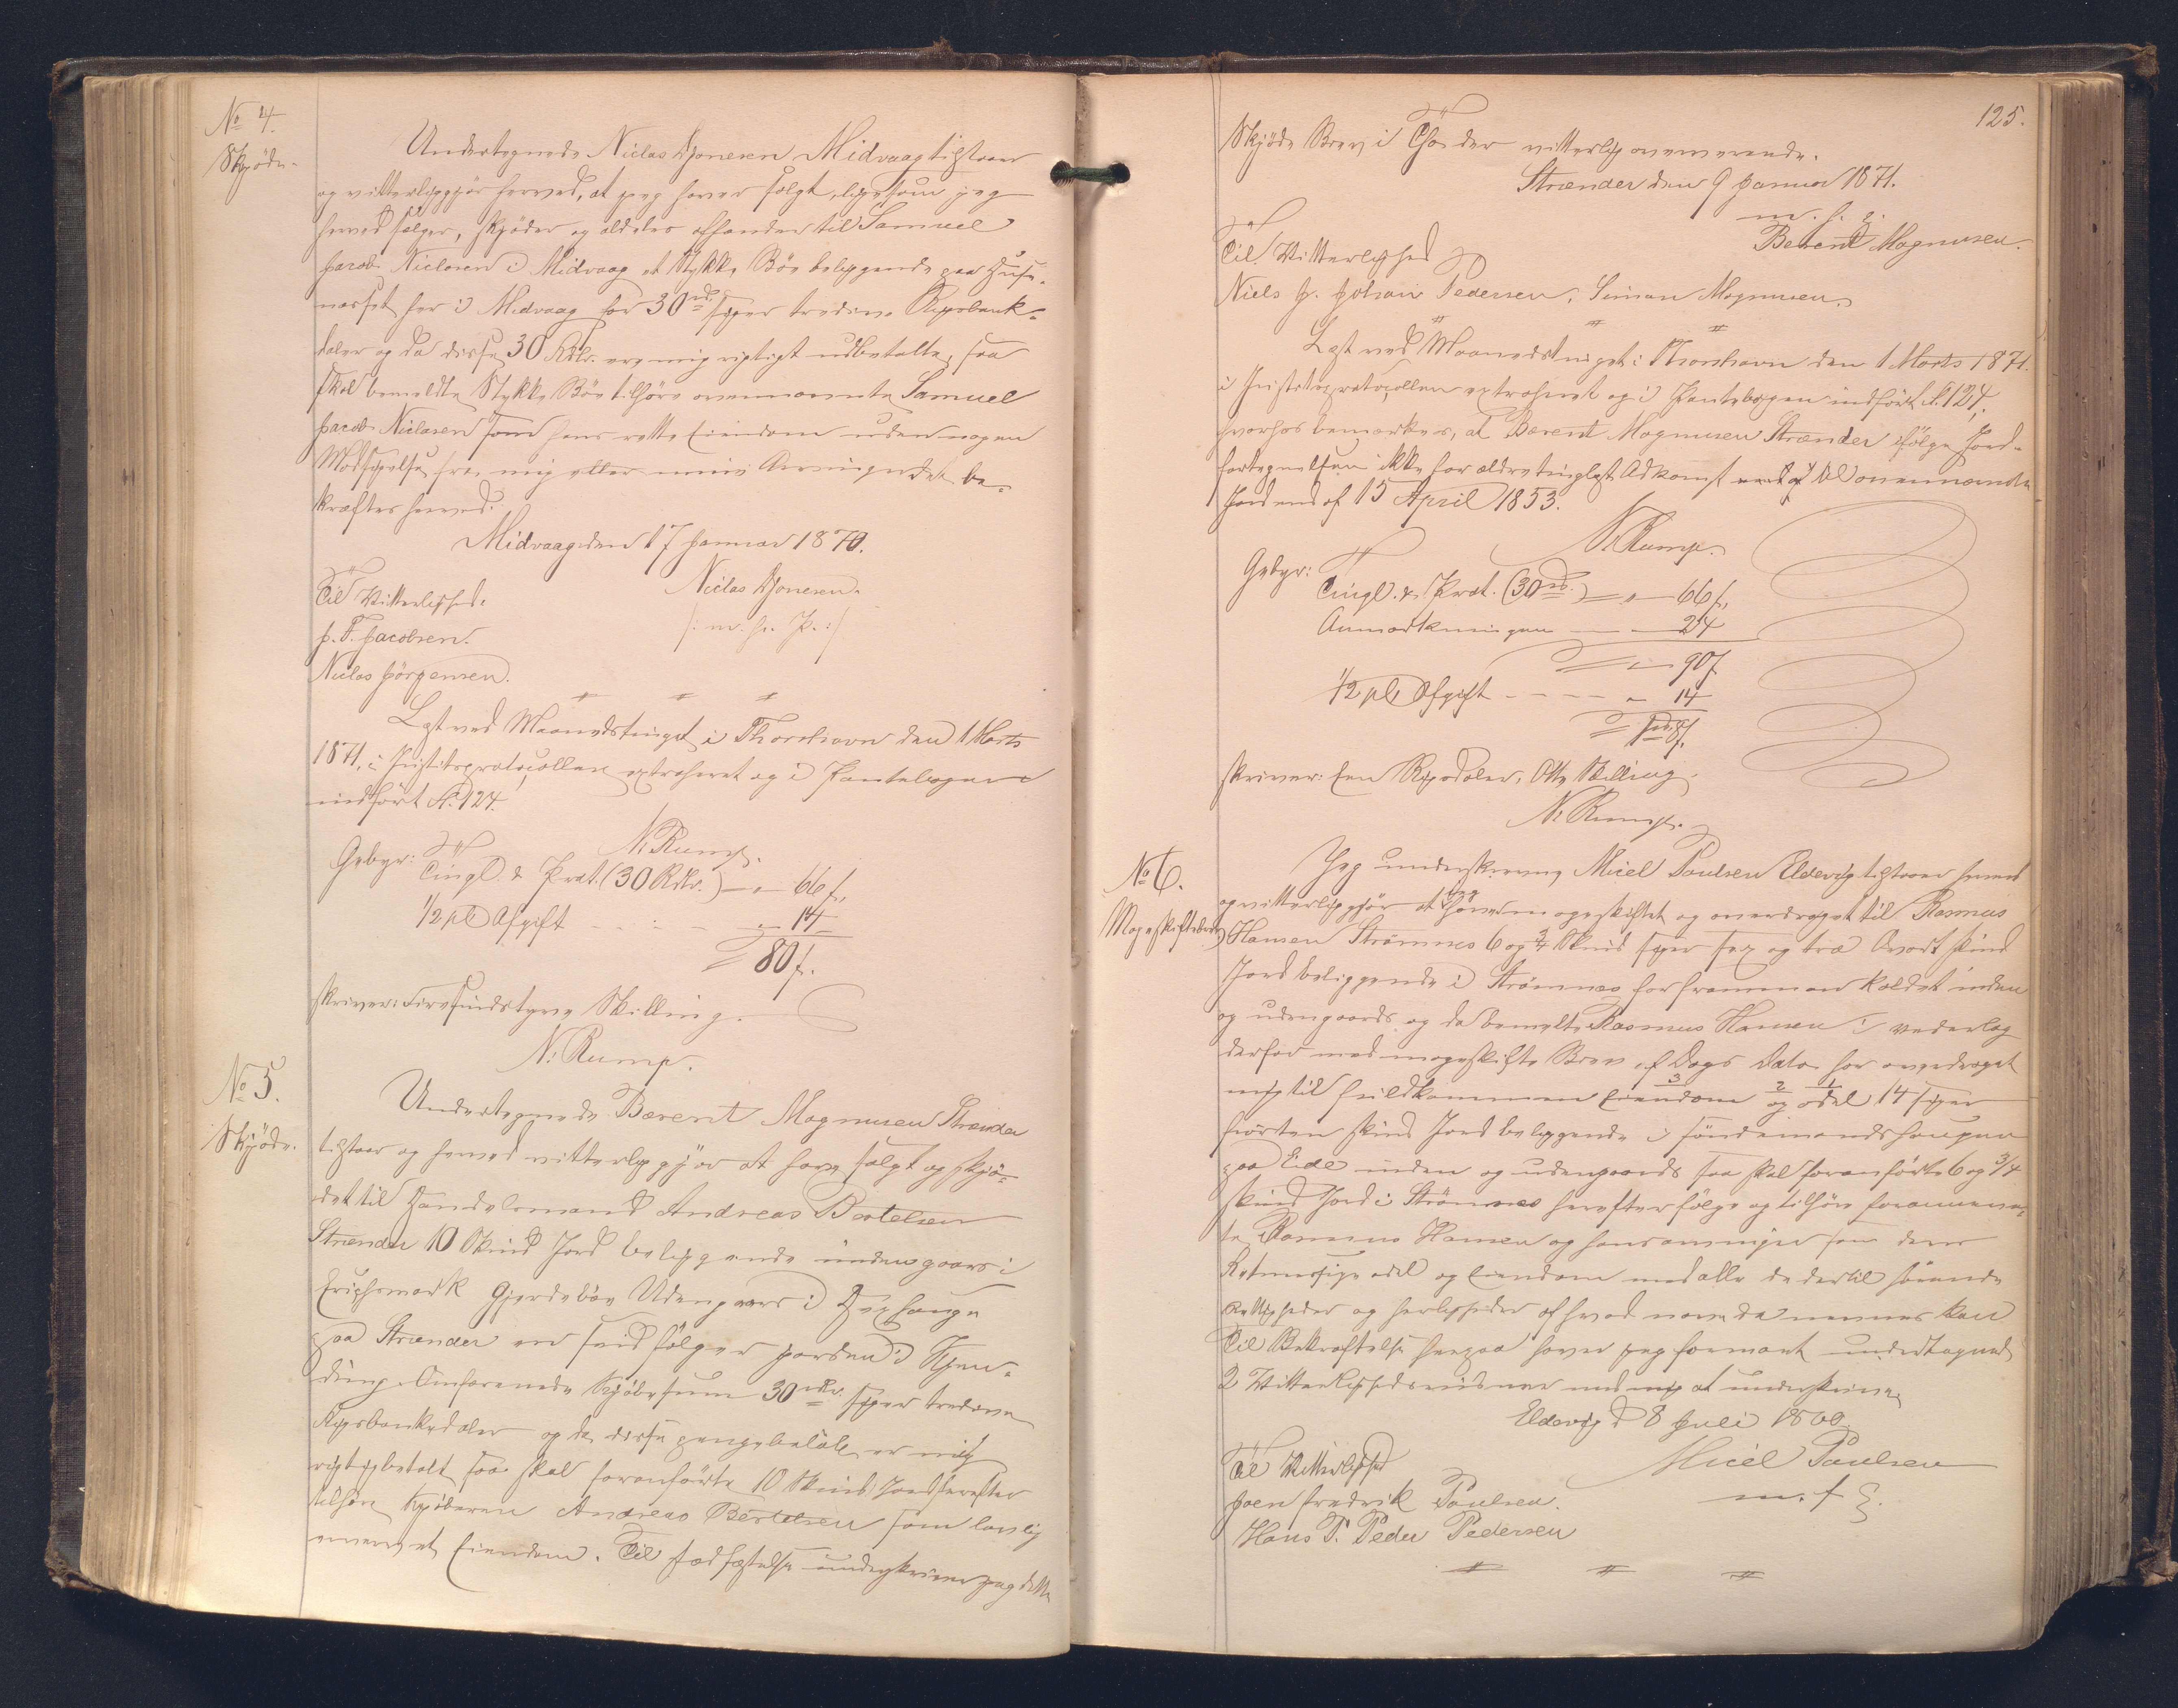 No 4.
Skjöde.
Undertegnede Niclas Djonesen Midvaag tilstaar
og vitterliggjør herved, at jeg haver solgt, ligesom jeg
herved sælger, skjøder og aldeles afhænder til Samuel
Jacob Niclasen i Midvaag et Stykke Bøe beliggende paa
næsset her i Midvaag for 30 rd. siger tredive Rigsbank-
daler og da disse 30 Rdlr. ere mig rigtigt udbetalte, saa
skal bemeldte Stykke Bøe tilhøre ovennævnte Samuel
Jacob Niclasen som hans rette Eiendom uden nogen
Modsigelse fra mig eller mine Arvinger det be-
kræftes herved.
Midvaag den 17 Januar 1870.
Til Vitterlighed.
Niclas Djonesen.
J. F. Jacobsen.
/: m. h. P. :/
Niclas Jörgensen.
Læst ved Maanedstinget i Thorshavn den 1 Marts
1871, i Justitsprotocollen extraheret og i Pantebogen
indført S. 124.
N. Rump.
Gebyr: Tingl. & Prot. (30 Rdlr.) — „ — 66 s.
1/2 pCt Afgift - - - „ 14
80 s.
skriver: Firesindstyve Skilling.
N. Rump.
No 5.
Skjöde.
Undertegnede Bærent Magnusen Strænder
tilstaar og herved vitterliggjør at have solgt og skjø-
det til Handelsmand Andreas Bertelsen
Strænder 10 Skind Jord beliggende indengaars i
Erichsmark Gjerdebøe Udengaars i
paa Strænder
Omførende Kjøbesum 30 rdlr. siger tredive
Rigsbankdaler og da disse pengebeløb er mig
rigtig betalt saa skal foranførte 10 Skind Jord herefter
tilhøre Kjøberen Andreas Bertelsen som lovlig
erhvervet Eiendom. Til stadfæstelse underskriver jeg dette
125.
Skjöde Brev i
Strænder den 9 Januar 1871.
m. h. P.
Til Vitterlighed
Berent Magnusen.
Niels J. Johan Pedersen, Simon Magnusen.
Læst ved Maanedstinget i Thorshavn den 1 Marts 1871.
i Justitsprotocollen extraheret og i Pantebogen indført S. 124,
hvorhos bemærkes, at Bærent Magnusen Strænder ifølge Jord-
fortegnelsen ikke har ældre tinglyst Adkomst til ovennævnte
Jord end af 15 April 1853.
N. Rump.
Gebyr: Tingl. & Prot. (30 rd.) — „ — 66 s.
Anmærkningen — — 24
90 s.
1/2 pCt Afgift - - - „ 14
1 rd. 8 s.
skriver: Een Rigsdaler, Otte Skilling.
N. Rump.
No 6.
Mageskiftebrev
Jeg underskrevne Micel Poulsen Eldevig tilstaar herved
og vitterliggjør at jeg haver mageskiftet og overdraget til Rasmus
Hansen Strömnes 6 og 3/4 Skind siger sex og tre Qvart skind
Jord beliggende i Strømnes kaldet inden
og udengaards og da bemeldte Rasmus Hansen i vederlag
derfor med mageskifte Brev af Dags Dato har overdraget
mig til fuldkommen Eiendom og odel 14 siger
fiorten skind Jord beliggende i
paa Eide inden og udengaards saa skal foranførte 6 og 3/4
skind Jord i Strömnes herefter følge og tilhøre forannævn-
te Rasmus Hansen og hans arvinger som deres
Retmessige odel og Eiendom med alle de dertil hørende
Rettigheder og herligheder af hvad navn de nævnes kan
Til Bekræftelse herpaa haver jeg formaat undertegnede
2 Vitterlighedsvidner med mig at underskrive.
Eldevig d 8 Juli 1860.
Til Vitterlighed
Micél Poulsen
Joen fredrik Poulsen.
m. f P.
Hans P. Peder Pedersen